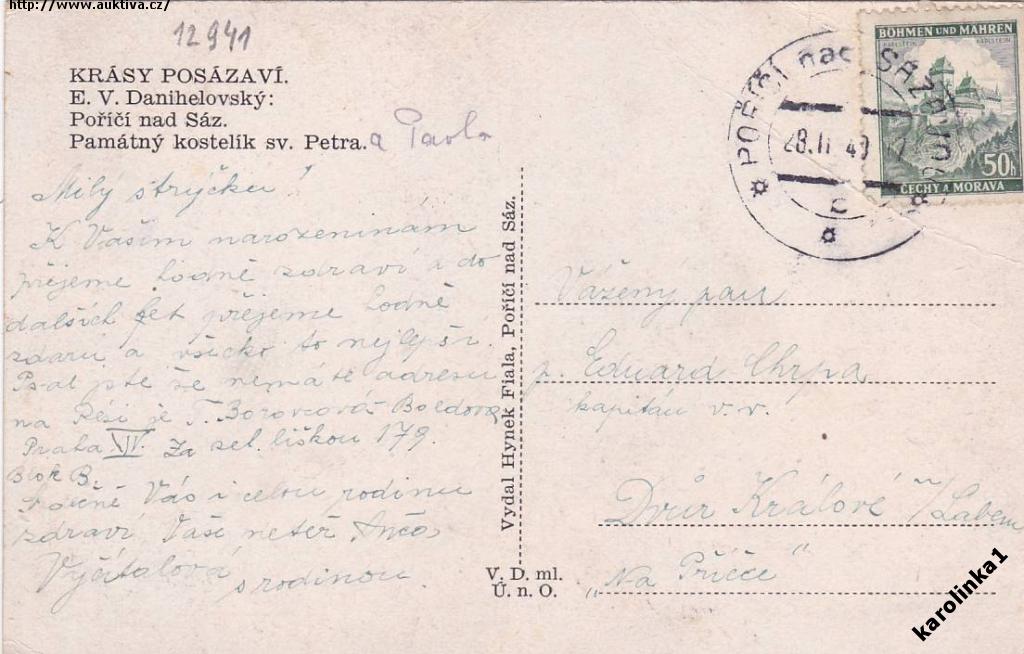 http://www.auktiva.cz/
12941
KRÁSY POSÁZAVÍ.
E. V. Danihelovský:
Poříčí nad Sáz.
Památný kostelík sv. Petra. a Pavla
Milý strýčku!
K Vašim narozeninám
přejeme hodně zdraví a do
dalších let přejeme hodně
zdaru a všecko to nejlepší.
Psal jste že nemáte adresu
na je T. Borovcová
Praha XIV. Za zel. liškou 179.
Blok B.
Srdečně Vás i celou rodinu
zdraví Vaše neteř Anča
Vyčítalová
s rodinou.
Vydal Hynek Fiala, Poříčí nad Sáz.
V. D. ml.
Ú. n. O.
BÖHMEN UND MÄHREN
KARLSTEIN KARLŠTEJN
50h
ČECHY A MORAVA
POŘÍČÍ nad SÁZAVOU
28.II 40
Vážený pan
p. Eduard Chrpa
kapitán v. v.
Dvůr Králové n/Labem
„Na Příčce"
karolinka1